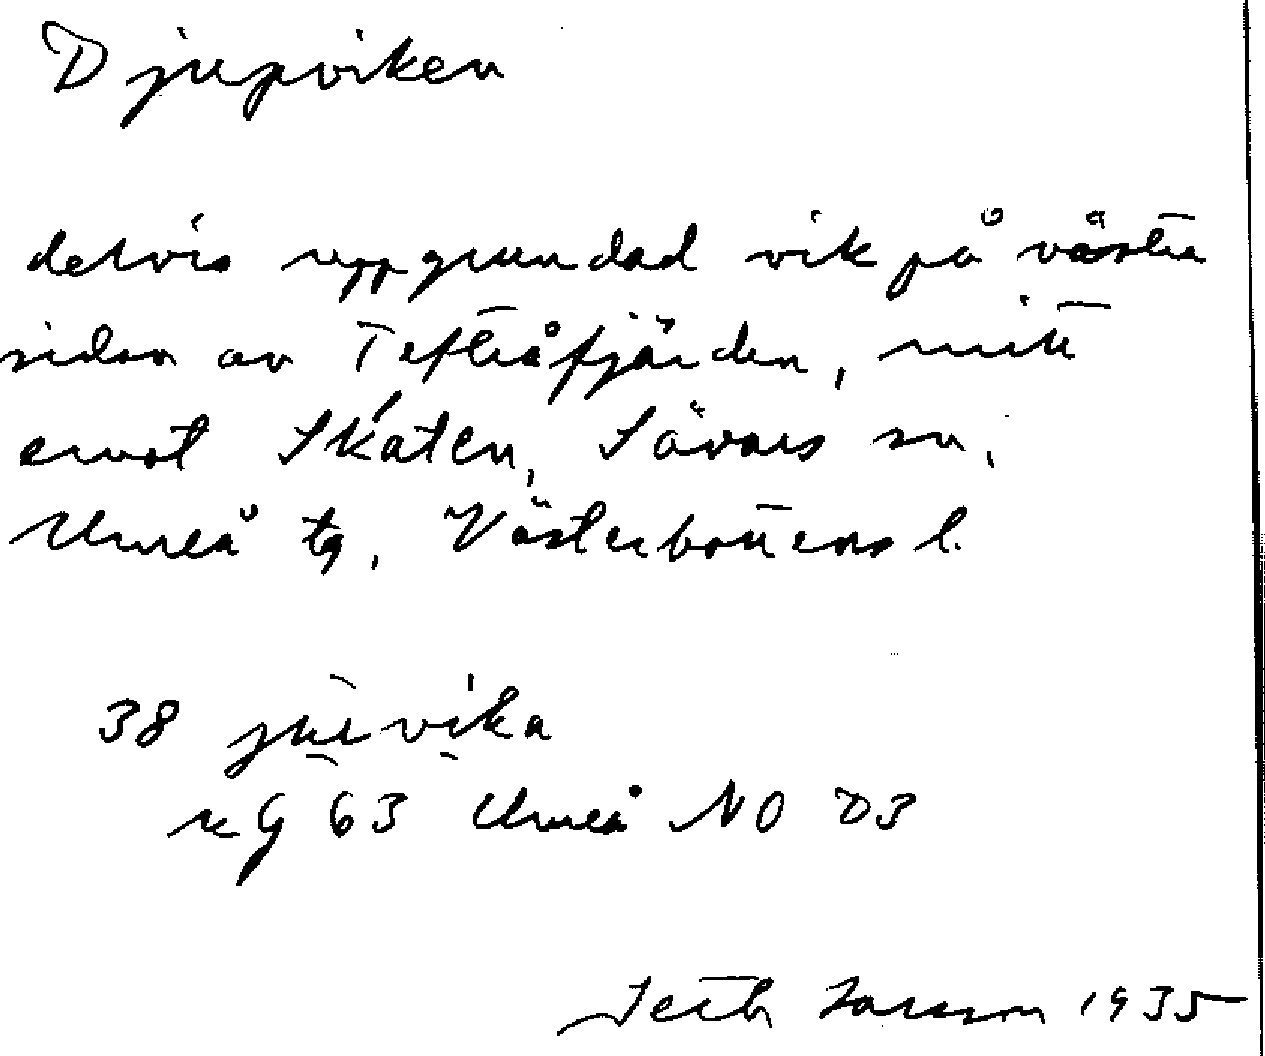 Djupviken
delvis uppgrundad vik på västra
sidan av Tefteåfjärden, mitt
emot Skaten, Sävars sn,
Umeå tg, Västerbottens l.
38
eG 63 Umeå NO D3
Seth Larsson 1935